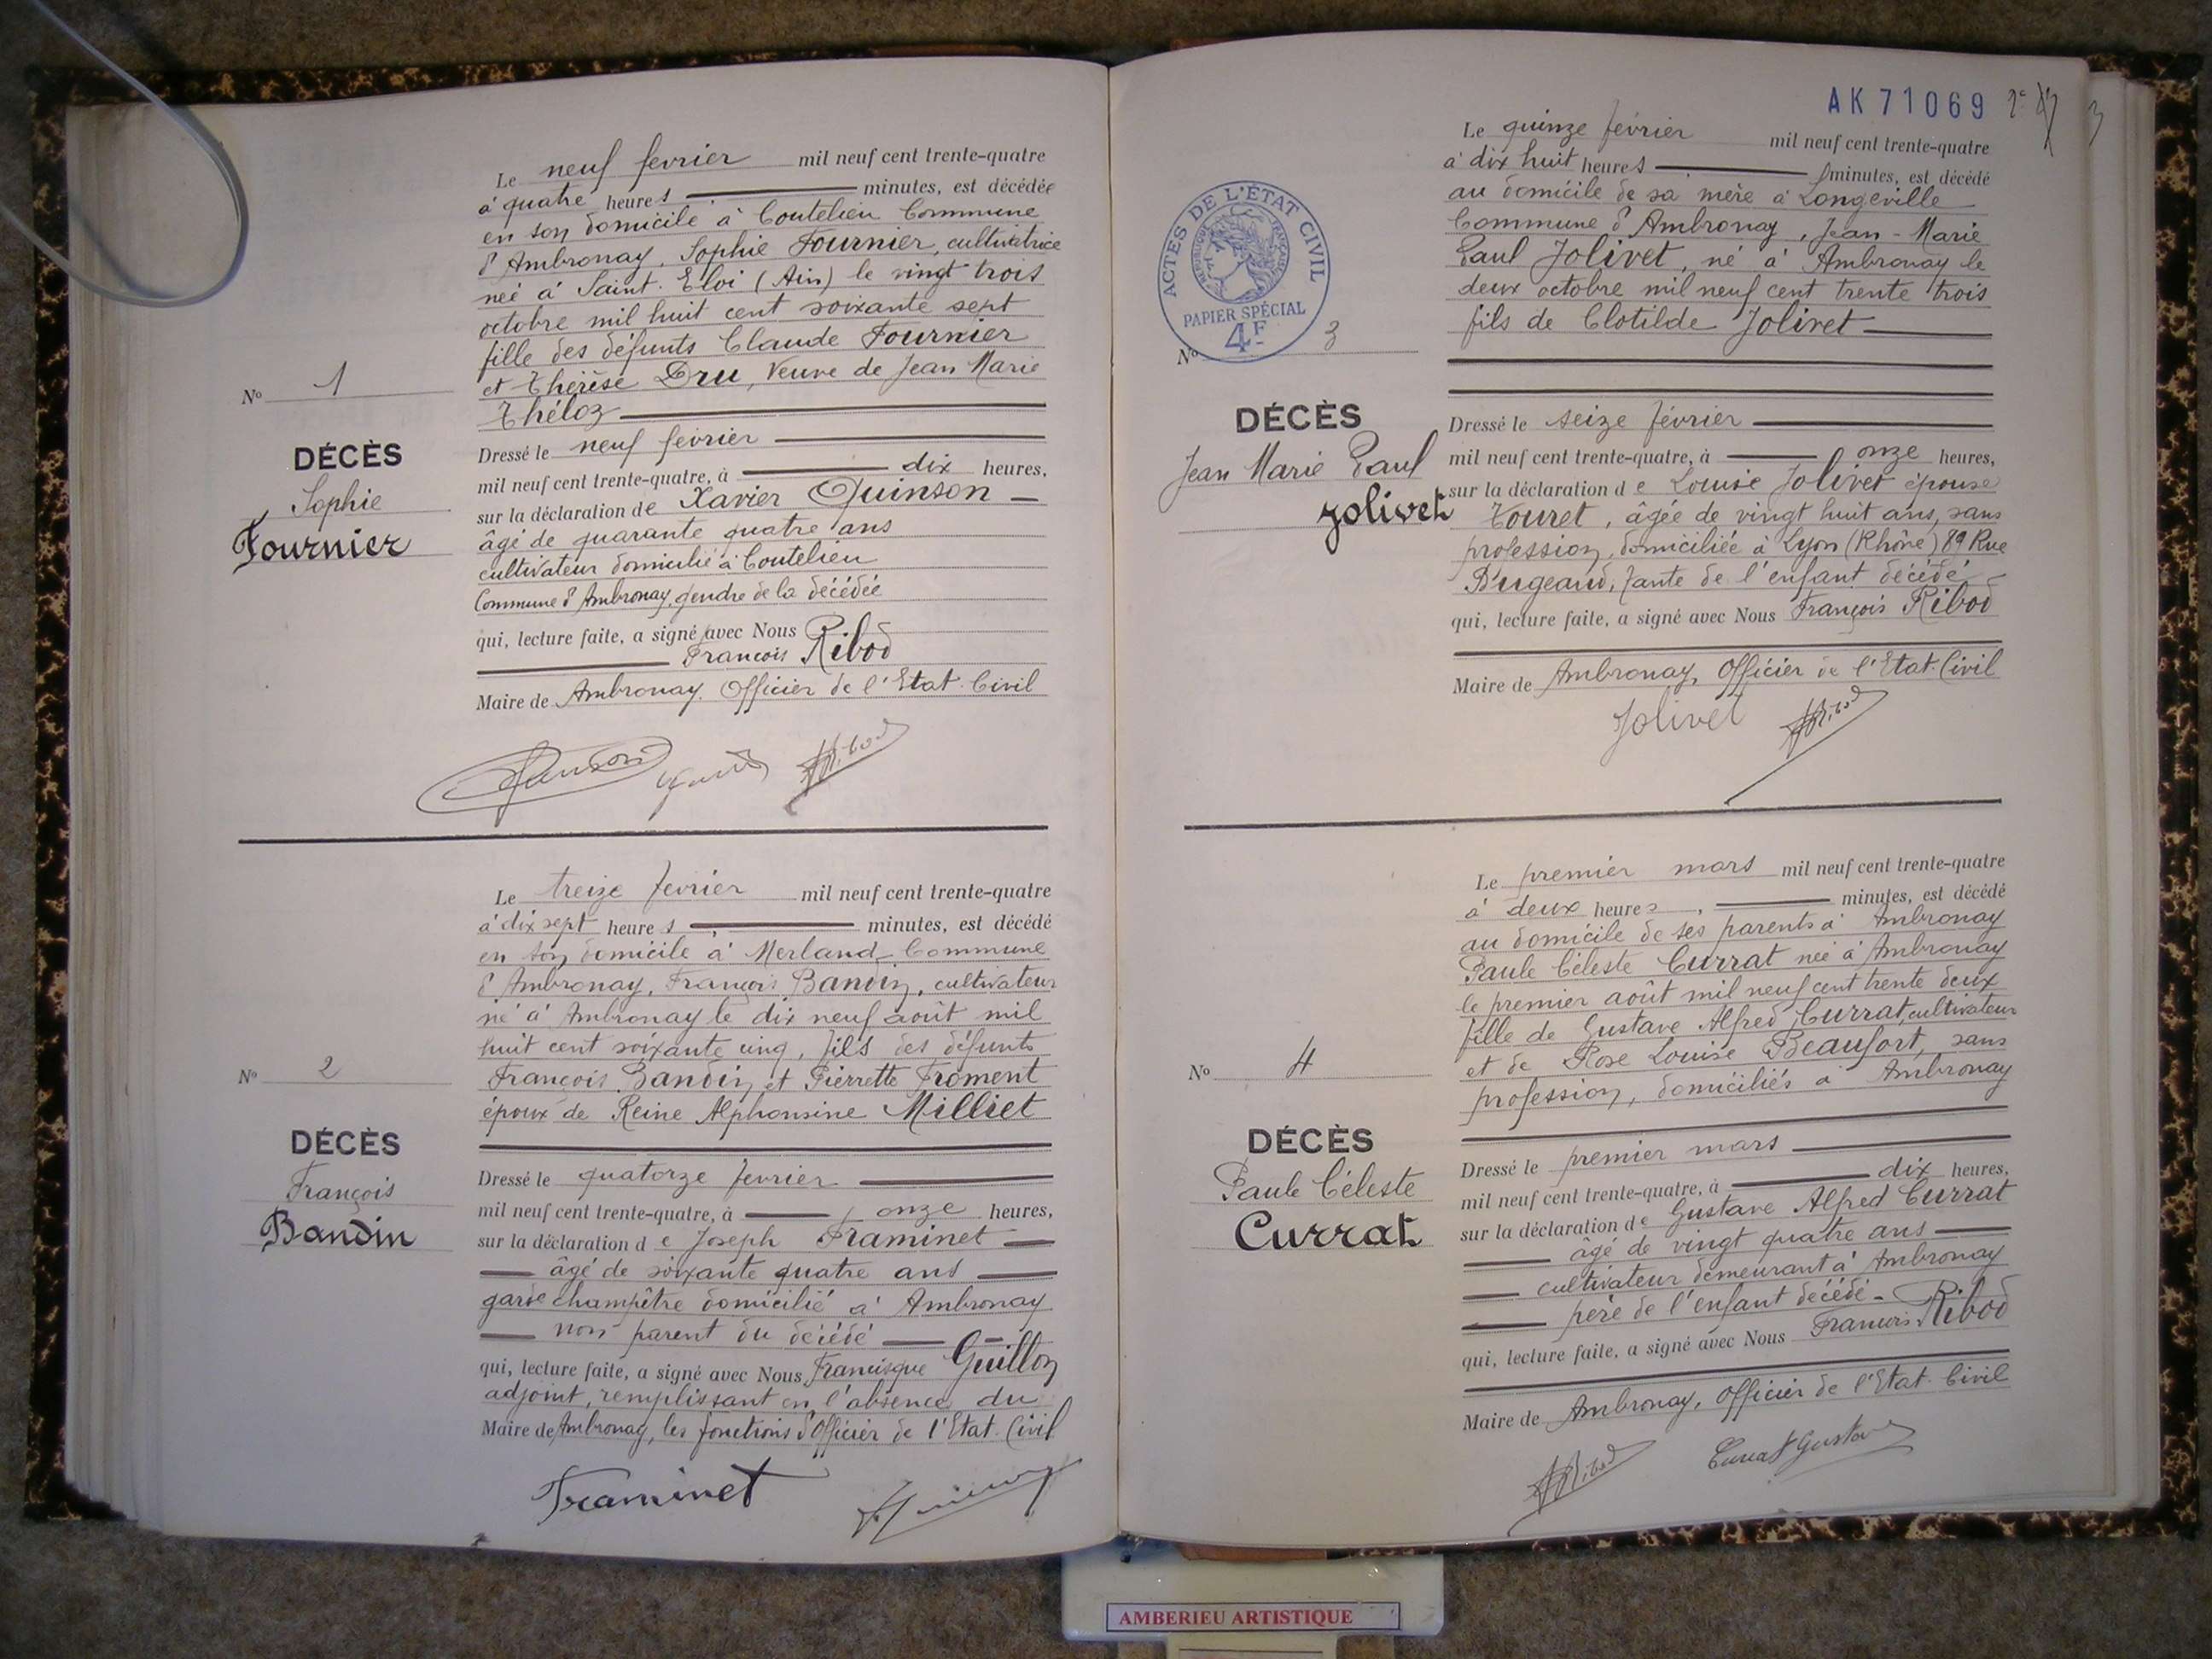 Le neuf fevrier mil neuf cent trente-quatre
à quatre heures minutes, est décédée
en son domicile à Coutelieu Commune
d'Ambronay, Sophie Fournier, cultivatrice
née à Saint-Eloi (Ain) le vingt trois
octobre mil huit cent soixante sept
fille des défunts Claude Fournier
et Thérèse Dru, Veuve de Jean Marie
Théloz
No 1
DÉCÈS
Sophie
Fournier
Dressé le neuf fevrier
mil neuf cent trente-quatre, à dix heures,
sur la déclaration de Xavier Quinson
âgé de quarante quatre ans
cultivateur domicilié à Coutelieu
Commune d'Ambronay, gendre de la décédée
qui, lecture faite, a signé avec Nous
François Ribod
Maire de Ambronay, Officier de l'Etat-Civil
Le treize fevrier mil neuf cent trente-quatre
à dix sept heures minutes, est décédé
en son domicile à Merland Commune
d'Ambronay, François Bandin, cultivateur
né à Ambronay le dix neuf août mil
huit cent soixante cinq, fils des défunts
François Bandin et Pierrette Froment
époux de Reine Alphonsine Milliet
No 2
DÉCÈS
François
Bandin
Dressé le quatorze fevrier
mil neuf cent trente-quatre, à onze heures,
sur la déclaration de Joseph Framinet
âgé de soixante quatre ans
garde champêtre domicilié à Ambronay
non parent du décédé
qui, lecture faite, a signé avec Nous Francisque Guillon
adjoint, remplissant en l'absence du
Maire de Ambronay, les fonctions d'Officier de l'Etat-Civil
Framinet
AK 71069
Le quinze février mil neuf cent trente-quatre
à dix huit heures minutes, est décédé
au domicile de sa mère à Longeville
Commune d'Ambronay, Jean-Marie
Paul Jolivet, né à Ambronay le
deux octobre mil neuf cent trente trois
fils de Clotilde Jolivet
ACTES DE L'ÉTAT CIVIL
RÉPUBLIQUE FRANÇAISE
PAPIER SPÉCIAL
4F
No 3
DÉCÈS
Jean Marie Paul
Jolivet
Dressé le seize février
mil neuf cent trente-quatre, à onze heures,
sur la déclaration de Louise Jolivet épouse
Touret, âgée de vingt huit ans, sans
profession, domiciliée à Lyon (Rhône) 89 Rue
Bugeaud, tante de l'enfant décédé
qui, lecture faite, a signé avec Nous François Ribod
Maire de Ambronay, Officier de l'Etat-Civil
Jolivet
Le premier mars mil neuf cent trente-quatre
à deux heures minutes, est décédé
au domicile de ses parents à Ambronay
Paule Céleste Currat née à Ambronay
le premier août mil neuf cent trente deux
fille de Gustave Alfred Currat, cultivateur
et de Rose Louise Beaufort, sans
profession, domiciliés à Ambronay
No 4
DÉCÈS
Paule Céleste
Currat
Dressé le premier mars
mil neuf cent trente-quatre, à dix heures,
sur la déclaration de Gustave Alfred Currat
âgé de vingt quatre ans
cultivateur demeurant à Ambronay
père de l'enfant décédé
qui, lecture faite, a signé avec Nous François Ribod
Maire de Ambronay, Officier de l'Etat-Civil
Currat Gustave
AMBERIEU ARTISTIQUE